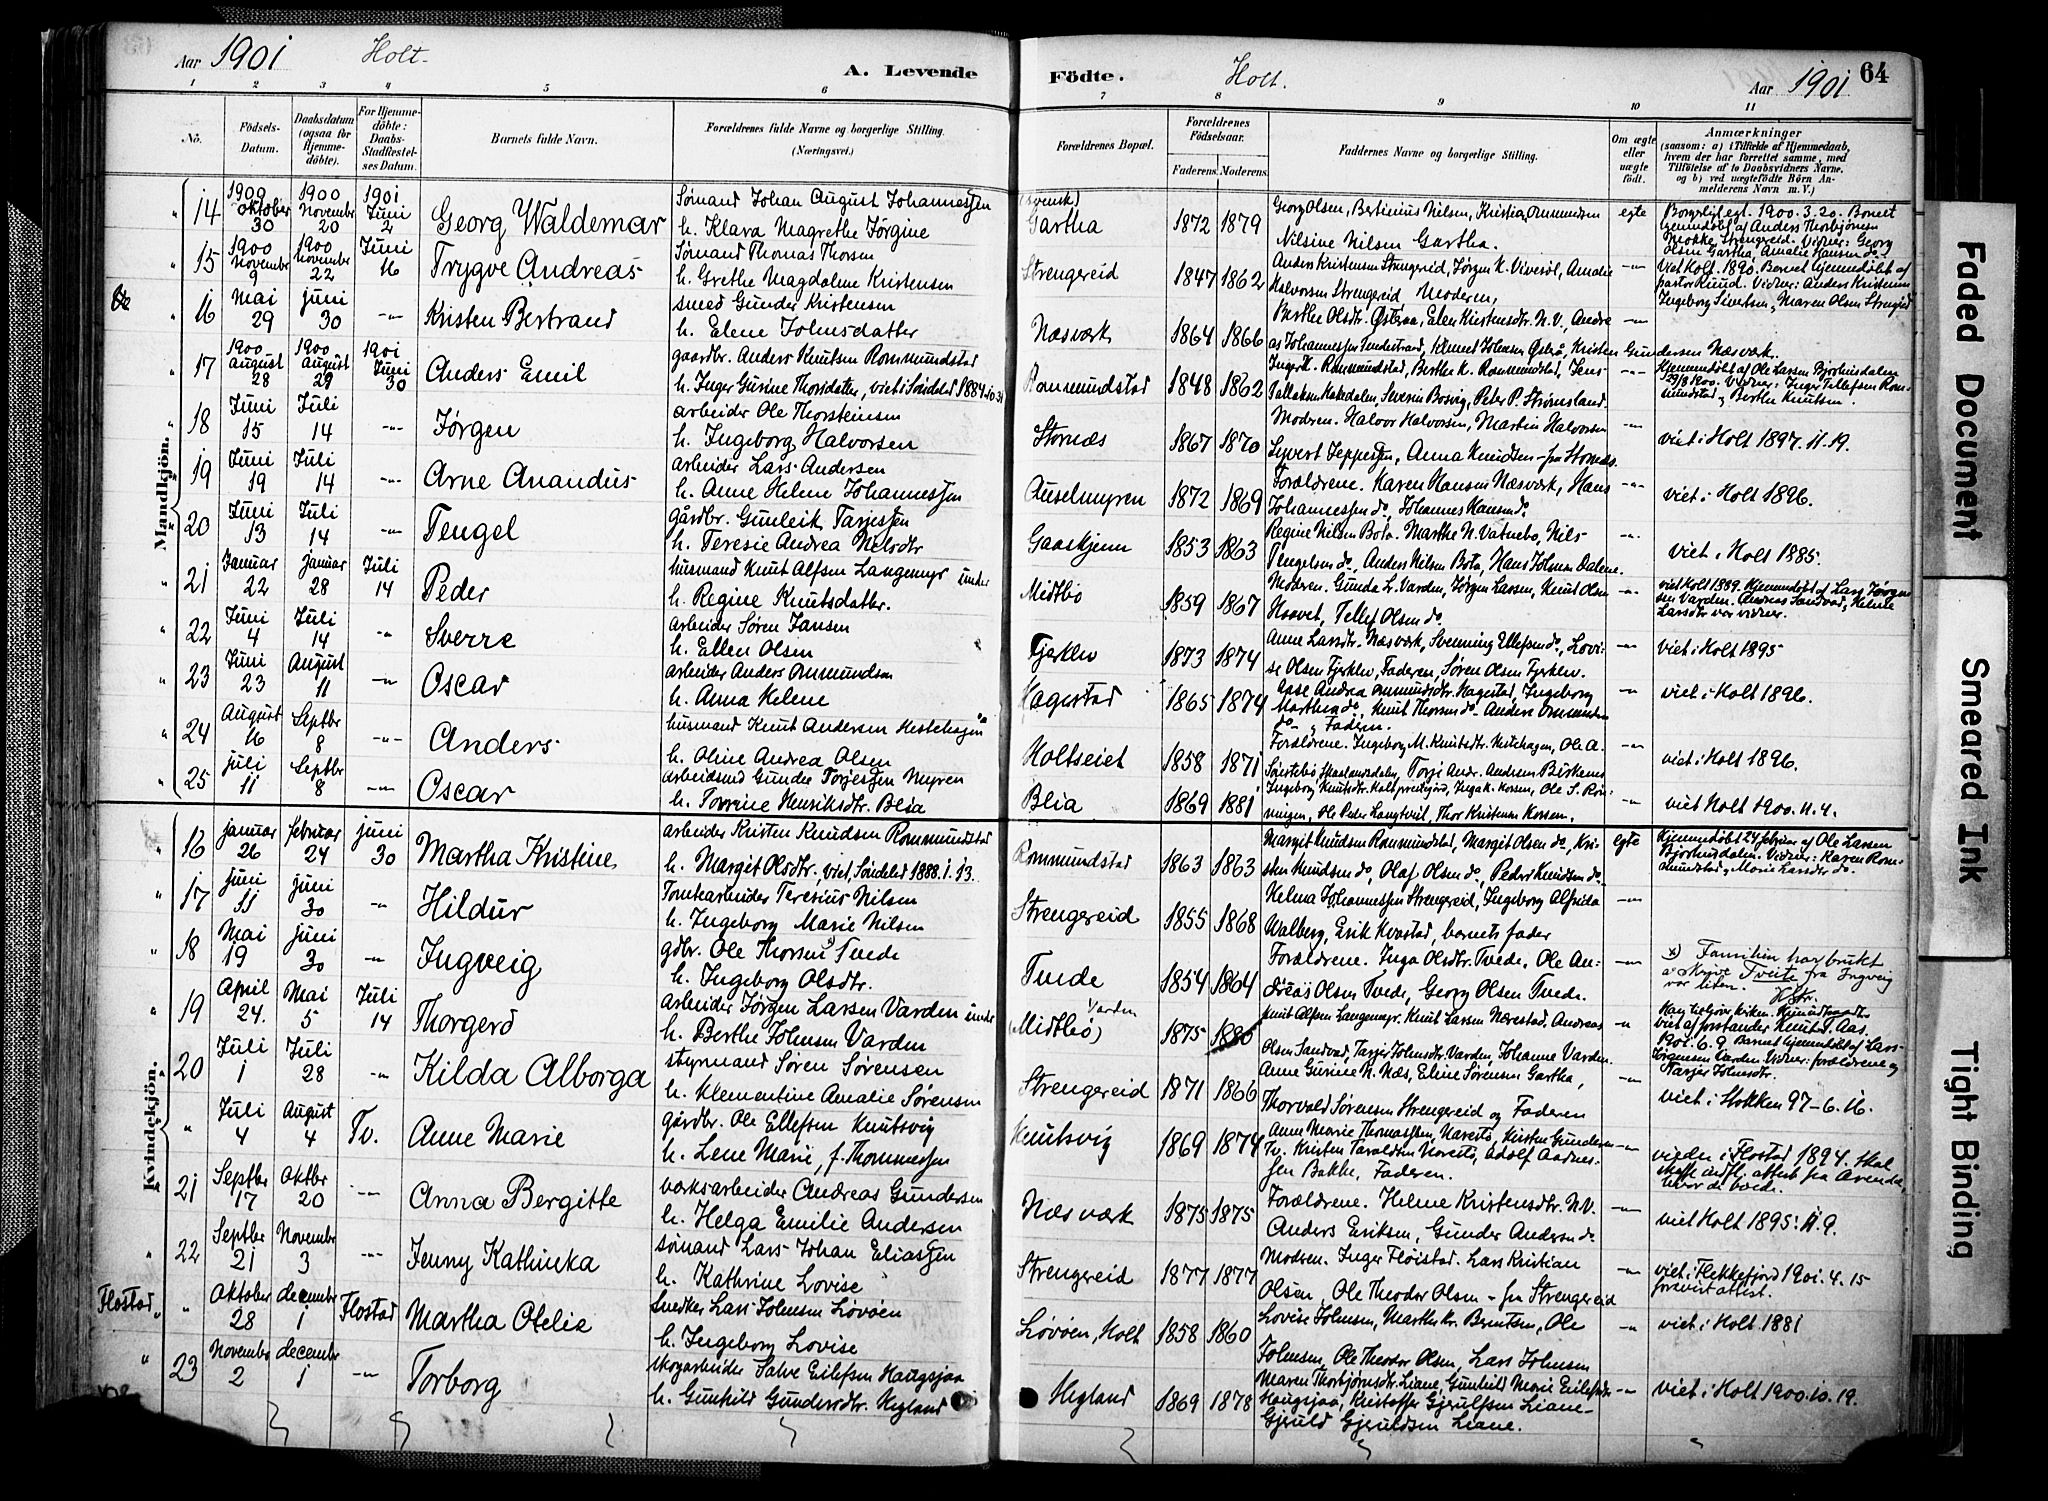 Aar 1901 Holt.
A. Levende Födte.
Holt. Aar 1901 64
1 2 3 4 5 6 7 8 9 10 11
No. Födsels-Datum. Daabsdatum (ogsaa for Hjemmedöbte). For Hjemmedöbte: Daabs-Stadfæstelses Datum. Barnets fulde Navn. Forældrenes fulde Navne og borgerlige Stilling. (Næringsvei.) Forældrenes Bopæl. Forældrenes Födselsaar. Faderens. Moderens. Faddernes Navne og borgerlige Stilling. Om ægte eller uægte födt. Anmærkninger (saasom: a) i Tilfælde af Hjemmedaab, hvem der har forrettet samme, med Tilföielse af to Daabsvidners Navne. og b) ved uægtefödte Börn Anmelderens Navn m. V.)
Mandkjön.
14 1900 oktober 30 1900 November 20 1901 Juni 2 Georg Waldemar Sømand Johan August Johannessen h. Klara Magrethe Jørgine (svensk) Gartha 1872 1879 Georg Olsen, Bertinius Nilsen, Kristian Ommundsen Nilsine Nilsen Gartha. egte Borgerligt egt. 1900.3.20. Barnet hjemmedøbt af Anders Thorbjörnsen Strengereid. Vidner: Georg Olsen Gartha, Amalie Hansen do.
15 1900 November 9 1900 November 22 Juni 16 Trygve Andreas Sømand Thomas Thorsen h. Grethe Magdalene Kristensen Strengereid 1847 1862 Anders Kristensen Strengereid, Jørgen K. Vivesöl, Amalie Halvorsen Strengereid, Moderen, Viet Holt. 1890. Barnet hjemmedøbt af pastor Ruud. Vidner: Anders Kristensen Ingeborg Sivertsen, Maren Olsen Strengereid
16 Mai 29 juni 30 Kristen Bertrand smed Gunder Kristensen h. Elene Johnsdatter Næsværk 1864 1866 Berthe Olsdtr. Østeraa, Elen Kristensdtr. N.V., Andreas Johannessen, Kristen Gundersen Næsværk.
17 1900 August 28 1900 August 29 1901 Juni 30 Anders Emil gaardbr. Anders Knutsen Rommundstad h. Inger Gurine Thorsdatter, viet i Søndeled 1884.10.31 Rommundstad 1848 1862 Inger K. Rommundstad, Berthe K. Rommundstad, Jens Tallaksen, Severin Bosvig, Peter P. Strømsland. Hjemmedøbt af Ole Larsen Bjorhusdalen 29/8 1900. Vidner: Inger Tellefsen Rommundstad og Berthe Knutsen.
18 Juni 15 Juli 14 Jørgen arbeider Ole Thorsteinsen h. Ingeborg Halvorsen Stornæs 1867 1870 Moderen. Halvor Halvorsen, Martin Halvorsen Syvert Jeppesen, Anna Knudsen - fra Stornæs. viet i Holt 1897.11.19.
19 Juni 19 Juli 14 Arne Anandus arbeider Lars Andersen h. Anne Helene Johannessen Auselmyren 1872 1869 Forældrene. Karen Hansen Næsværk, Hans Johannessen do, Johannes Hansen do. viet i Holt 1896.
20 Juni 13 Juli 14 Tengel gårdbr. Gunleik Tarjesen h. Teresie Andrea Nelsdtr Gaaskjenn 1853 1863 Regine Nilsen Bota. Marthe N. Vatnebo, Nils Tengelsen do, Anders Nilsen Bota, Hans Johnsen Dalene. viet i Holt 1885.
21 Januar 22 Januar 28 Juli 14 Peder husmand Knut Alfsen Langemyr under h. Regine Knutsdatter. Midtbö 1859 1867 Moderen. Gunda L. Varden, Jørgen Larsen, Knut Olsen Haavet, Tellef Olsen do. viet Holt 1889. Hjemmedøbt af Lars Jørgensen Varden. Andreas Sandvad, Helene Larsdtr var vidner.
22 Juni 4 Juli 14 Sverre arbeider Søren Jansen h. Ellen Olsen Fjerklev 1873 1874 Anne Larsdtr. Næsværk, Svenning Ellefsen do, Lovise Olsen Fjerklev, Faderen, Søren Olsen Fjerklev. viet i Holt 1895
23 Juni 23 August 11 Oscar arbeider Anders Ommundsen h. Anna Helene Hagestad 1865 1874 Aase Andrea Ommundsdtr. Hagestad, Ingeborg Marthea do, Knut Thorsen do - Anders Ommundsen do, Faderen. viet i Holt 1896.
24 August 16 Septbr 8 Anders husmand Knut Andersen Hestehagen h. Oline Andrea Olsen Holtseiet 1858 1871 Forældrene. Ingeborg M. Knutsdtr. Hestehagen, Ole A. Torje Andr. Andersen Birkenes viet i Holt 1896.
25 juli 11 Septbr 8 Oscar arbeidsmd Gunder Torjesen Myren h. Torrine Henriksdtr. Blia Blia 1869 1881 Ingeborg Knutsdtr. Holt prestegård, Inga K. Kossen, Ole S. Rønningen, Ole Peder Langtveit, Thor Kristensen Kossen. viet Holt 1900.11.4.
Kvindekjön.
16 januar 26 februar 24 juni 30 Martha Kristine arbeider Kristen Knudsen Rommundstad h. Margit Olsdtr., viet, Søndeled 1888.1.13. Rommundstad 1863 1863 Margit Knudsen Rommundstad, Margit Olsen do, Kristen Knudsen do, Olaf Olsen do, Peder Knudsen do. egte Hjemmedøbt 24 februar af Ole Larsen Bjorhusdalen. Vidner: Karen Rommundstad og Marie Larsdtr do.
17 juni 11 juni 30 Hildur Tomtearbeider Teresius Nilsen h. Ingeborg Marie Nilsen Strengereid 1855 1868 Helma Johannessen Strengereid, Ingeborg Alfrida Walberg, Erik Kvastad, barnets fader
18 Mai 19 juni 30 Ingveig gdbr. Ole Thorsen Tvede h. Ingeborg Olsdtr. Tvede 1854 1864 Forældrene. Inga Olsdtr. Tvede, Ole Andreas Olsen Tvede, Georg Olsen Tvede. x) Familien har brukt å skrive Tveite fra Ingveig var liten.
19 April 24. Mai 5 Juli 14 Thorgerd arbeider Jørgen Larsen Varden under h. Berthe Johnsen Varden Varden (Midtbö) 1875 1880 Knut Alfsen Langemyr. Knut Larsen Nærestad, Andreas Olsen Sandvad, Tarjer Johnsdtr. Varden, Johanne Varden. viet af forstander Knut T. Aas. 1901.6.9 Barnet hjemmedøbt af Lars Jørgensen Varden. Vidner: forældrene og Tarjer Johnsdtr.
20 Juli 1 Juli 28 Hilda Alborga styrmand Søren Sørensen h. Klementine Amalie Sørensen Strengereid 1871 1866 Anne Gurine N. Næs, Eline Sørensen Gartha, Thorvald Sørensen Strengereid og Faderen viet i Stokken 97-6.16.
" Juli 4 August 4 Tv. Anne Marie gårdbr. Ole Ellefsen Knutsvig h. Lene Marie, f. Thommessen Knutsvig 1869 1874 Anne Marie Thomassen, Narestø, Kristen Gundersen Tv. Kristen Taraldsen Narestø, Adolf Aadnessen Bakke, Faderen. viede i Flostad 1894. Skal skaffe indtl. attest fra Arendal, hvor de boede.
21 Septbr 17 Oktbr 20 Anna Bergitte værksarbeider Andreas Gundersen h. Helga Emilie Andersen Næsværk 1875 1875 Forældrene. Helene Kristensdtr. N.V. Anders Eriksen, Gunder Andersen do. viet Holt 1895.11.9.
22 Septbr 21 November 3 Jenny Kathinka sømand Lars Johan Eliassen h. Kathrine Lovise Strengereid 1877 1877 Modren. Inger Fløistad. Lars Kristian Olsen, Ole Theodor Olsen - fra Strengereid viet i Flekkefjord 1901.4.15 forevist attest.
Flostad " Oktober 28 december 1 Flostad Martha Otelie Snedker Lars Johnsen Løvöen h. Ingeborg Lovise Løvöen, Holt 1858 1860 Lovise Johnsen, Marthe Kr. Berntsen, Ole Johnsen, Ole Theodor Olsen, Lars Johnsen viet i Holt 1881
23 November 2 december 1 Torborg skogarbeider Salve Eilefsen Haugsjaa h. Gunhild Gundersdtr. Hegland Hegland 1869 1878 Maren Thorbjörnsdtr. Liane, Gunhild Marie Eilefsdtr Haugsjaa, Kristoffer Gjerulfsen Liane - Gjeruld Gjeruldsen Liane. viet i Holt 1900.10.19.
Faded Document
Smeared Ink
Tight Binding